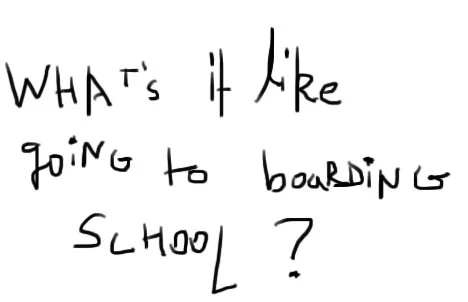 WHAT's it like
going to boarding
SCHOOL?